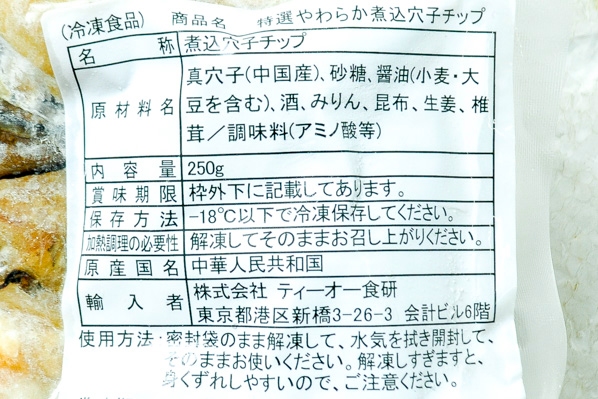 (冷凍食品) 商品名 特選やわらか煮込穴子チップ
名称 煮込穴子チップ
原材料名 真穴子(中国産)、砂糖、醤油(小麦・大
豆を含む)、酒、みりん、昆布、生姜、椎
茸／調味料(アミノ酸等)
内容量 250g
賞味期限 枠外下に記載してあります。
保存方法 -18℃以下で冷凍保存してください。
加熱調理の必要性 解凍してそのままお召し上がりください。
原産国名 中華人民共和国
輸入者 株式会社 ティーオー食研
東京都港区新橋3-26-3 会計ビル6階
使用方法:密封袋のまま解凍して、水気を拭き開封して、
そのままお使いください。解凍しすぎますと、
身くずれしやすいので、ご注意ください。